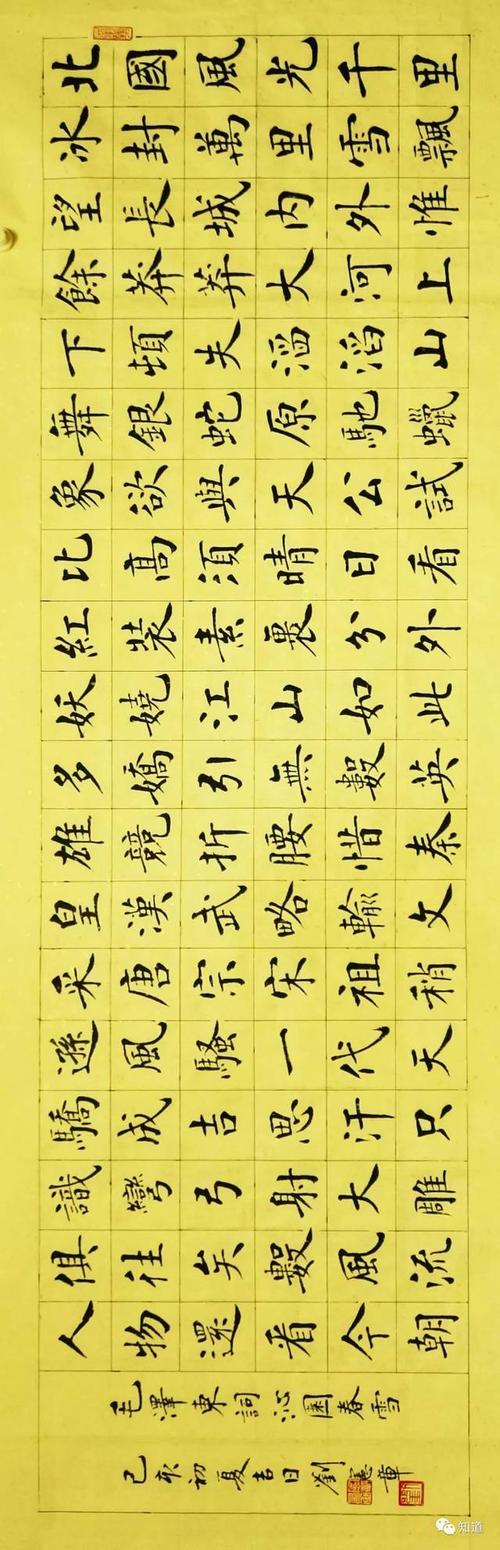 北國風光千里
冰封萬里雪飄
望長城內外惟
餘莽莽大河上
下頓失滔滔山
舞銀蛇原馳蠟
象欲與天公試
比高須晴日看
紅裝素裹分外
妖嬈江山如此
多嬌引無數英
雄競折腰惜秦
皇漢武略輸文
采唐宗宋祖稍
遜風騷一代天
驕成吉思汗只
識彎弓射大雕
俱往矣數風流
人物還看今朝
毛澤東詞沁園春雪
己亥初夏吉日劉憲章
知道